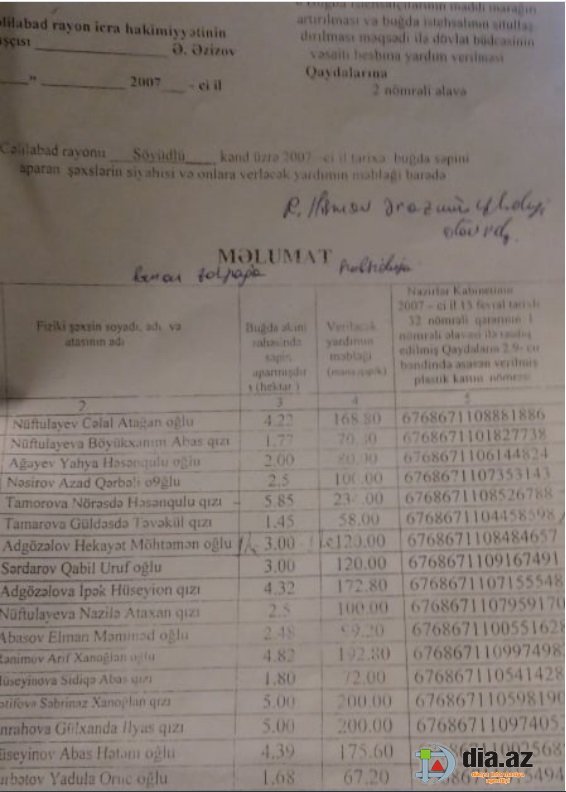 artırılması və buğda istehsalının
dırılması məqsədi ilə dövlət büdcəsinin
vəsaiti hesbına yardım verilməsi
Qaydalarına
2 nömrəli əlavə
əlilabad rayon icra hakimiyyətinin
şçısı Ə. Əzizov
" 2007 - ci il
Cəlilabad rayonu Söyüdlü kənd üzrə 2007 -ci il tarixə buğda səpini
aparan şəxslərin siyahısı və onlara verləcək yardımın məbləği barədə
MƏLUMAT
Fiziki şəxsin soyadı, adı və
atasının adı
Buğda əkini
sahəsində
səpin
aparmışdır
(hektar)
Veriləcək
yardımın
məbləği
(manat,qəpik)
Nazirlər Kabinetinin
2007 - ci il 15 fevral tarixli
32 nömrəli qərarının 1
nömrəli əlavəsi ilə təsdiq
edilmiş Qaydaların 2.9- cu
bəndinda əsasən verilmiş
plastik kartın nömrəsi
2 3 4 5
Nüftulayev Cəlal Atağan oğlu 4.22 168.80 6768671108881886
Nüftulayeva Böyükxanım Abas qızı 1.77 6768671101827738
Ağayev Yahya Həsənqulu oğlu 2.00 6768671106144824
Nəsirov Azad Qərbəli o9ğlu 2.5 100.00 6768671107353143
Tamorova Nörəsdə Həsənqulu qızı 5.85 6768671108526788
Tamarova Güldəsdə Təvəkül qızı 1.45 58.00 6768671104458598
Adgözəlov Hekayət Möhtəmən oğlu 3.00 120.00 6768671108484657
Sərdarov Qabil Uruf oğlu 3.00 120.00 6768671109167491
Adgözəlova İpək Hüseyion qızı 4.32 172.80 6768671107155548
Nüftulayeva Nazilə Ataxan qızı 2.5 100.00 6768671107959170
Abasov Elman Məminəd oğlu 2.48 99.20 6768671100551628
Rənimov Arif Xanağlan oğlu 4.82 192.80 676867110997498
Hüseyinova Sidiqə Abas qızı 1.80 72.00 676867110541428
ətifova Səbrinaz Xanoğlan qızı 5.00 200.00 676867110598190
nrahova Gülxanda İlyas qızı 5.00 200.00 67686711097405
üseyinov Abas Hətəm oğlu 4.39 175.60
urbətov Yadula Oruc oğlu 1.68 67.20
dia.az